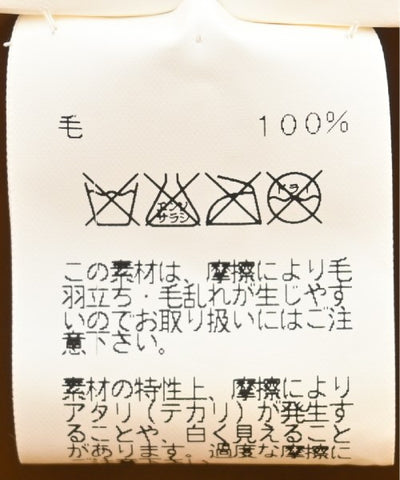 毛 100%
エンソ
サラシ
ドライ
この素材は、摩擦により毛
羽立ち・毛乱れが生じやす
いのでお取り扱いにはご注
意下さい。
素材の特性上、摩擦により
アタリ（テカリ）が発生す
ることや、白く見えること
があります。過度な摩擦に